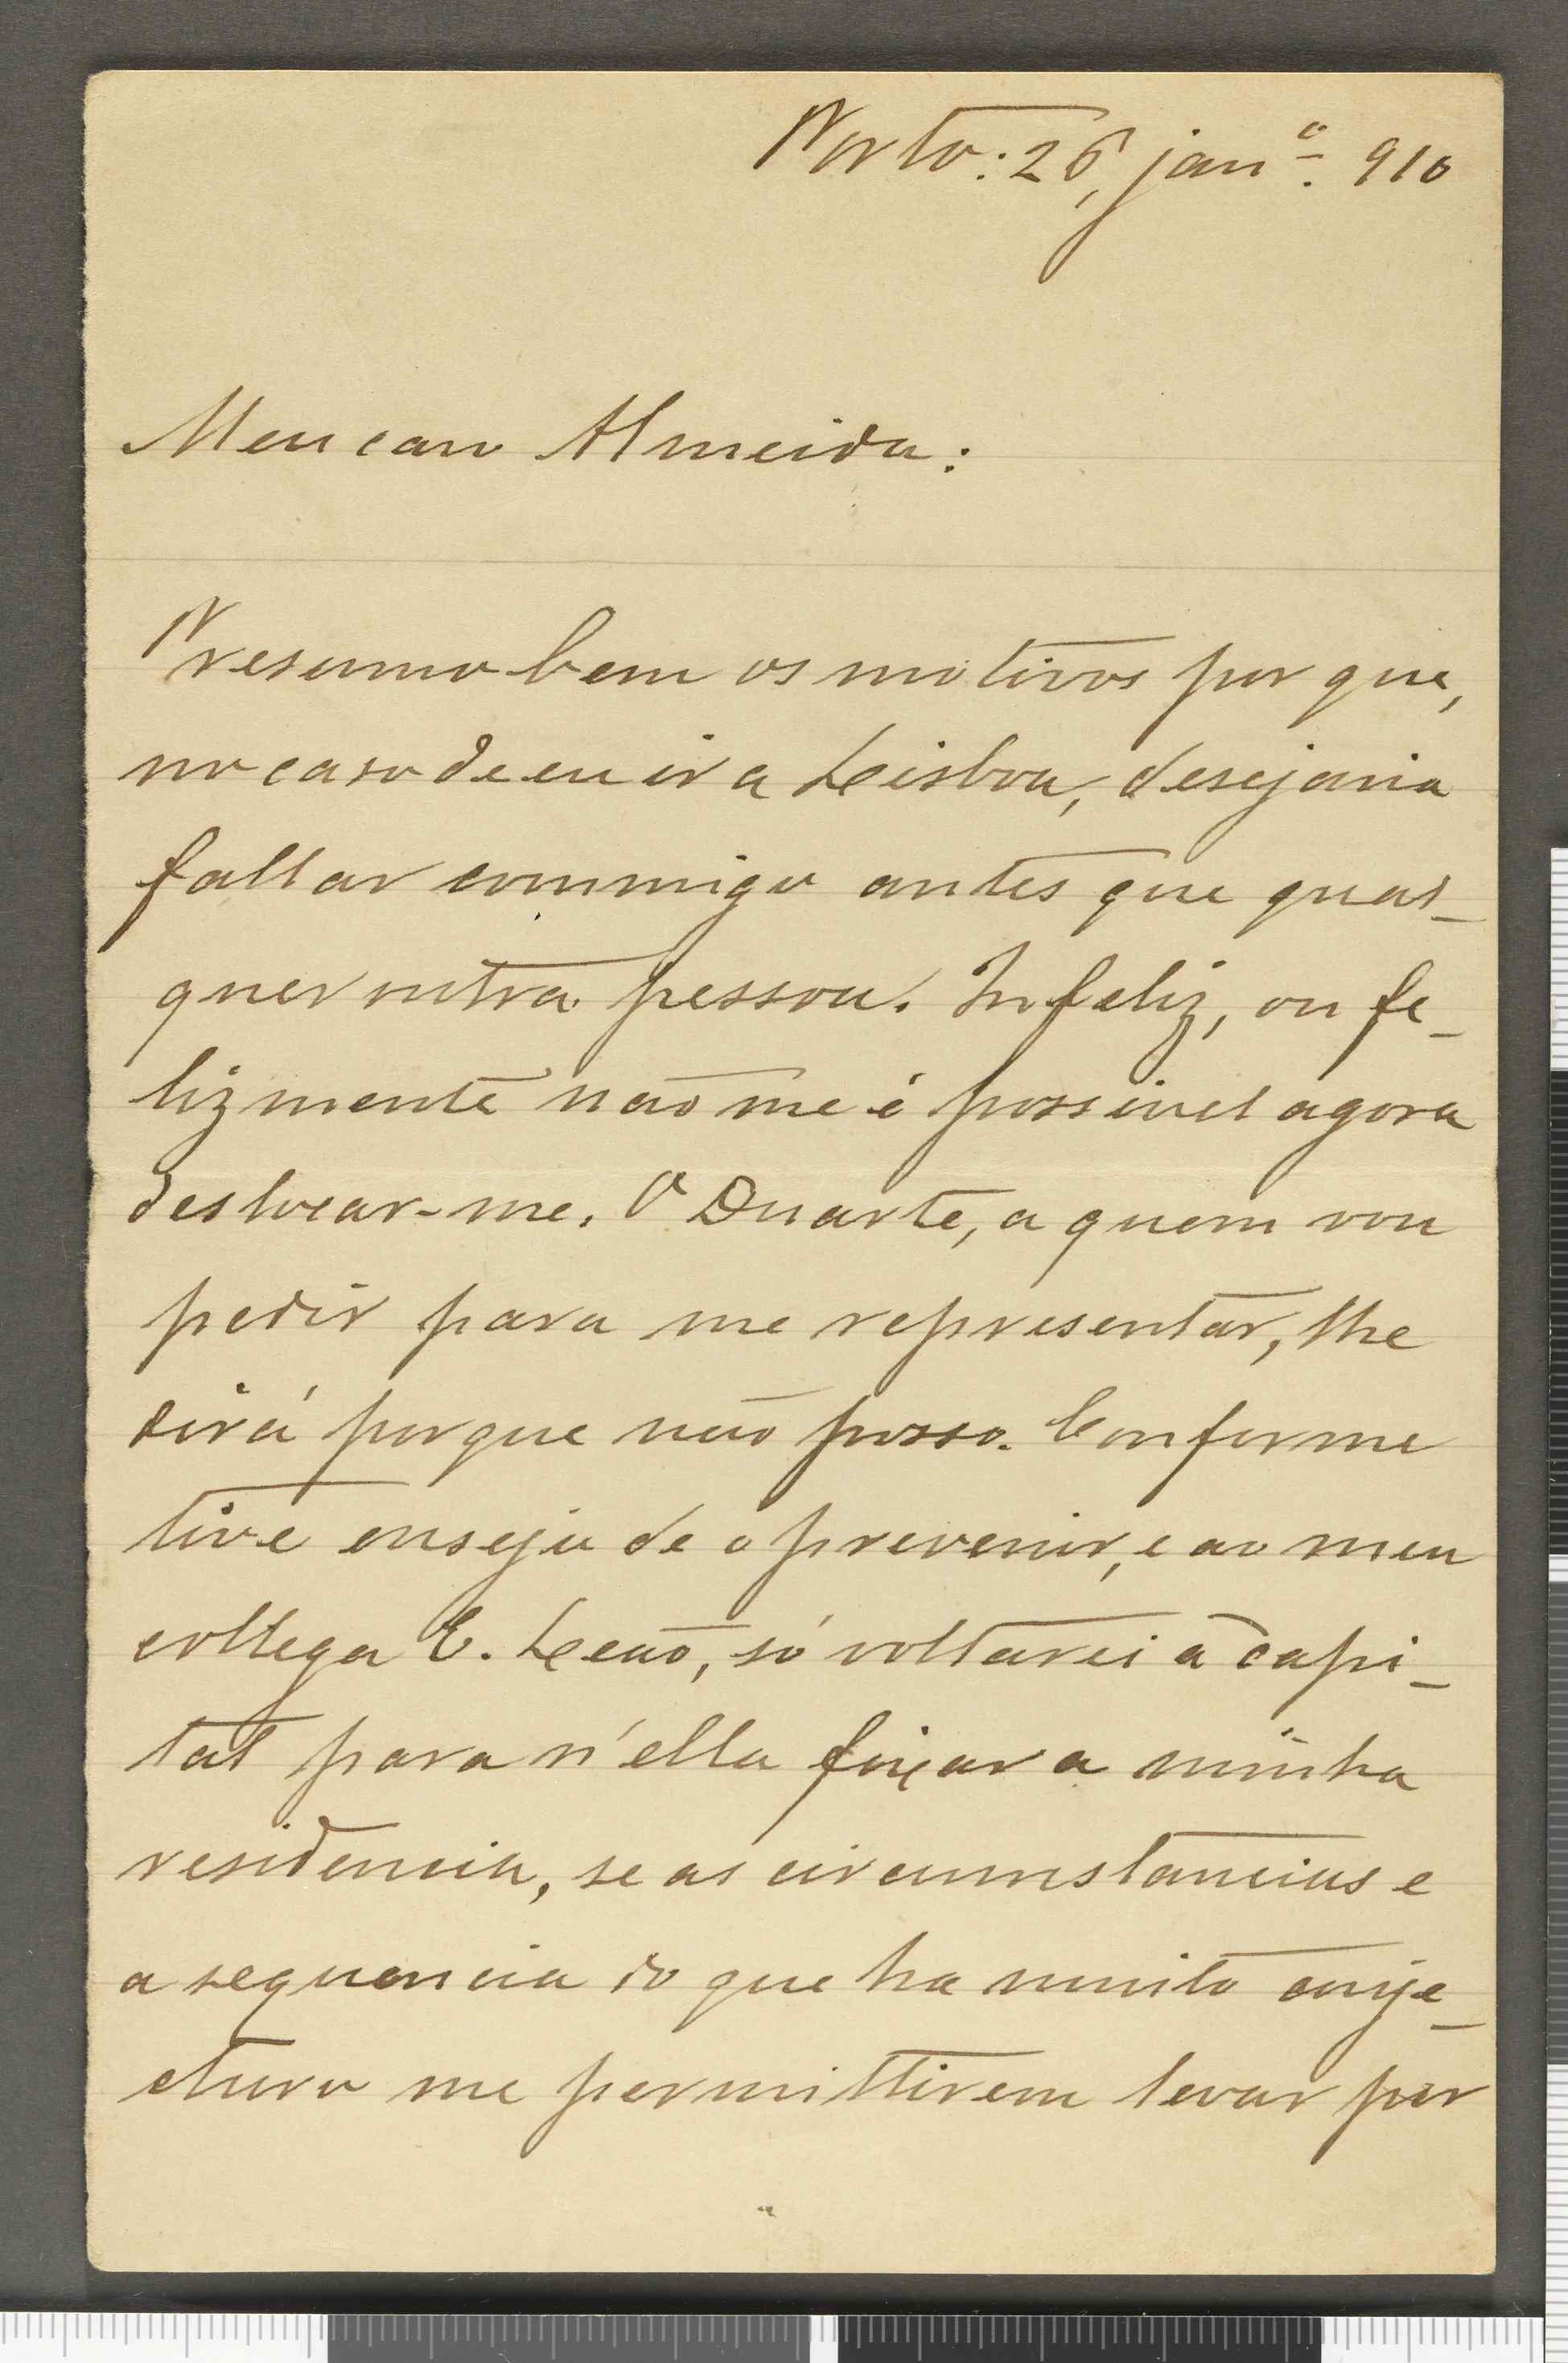 Porto: 26, janº. 910
Meu caro Almeida:
Presumo bem os motivos por que,
no caso de eu ir a Lisboa, desejaria
fallar commigo antes que qual-
quer outra pessoa. Infeliz, ou fe-
lizmente não me é possivel agora
deslocar-me. O Duarte, a quem vou
pedir para me representar, lhe
dirá porque não posso. Conforme
tive ensejo de o prevenir, e ao meu
collega E. Leão, só voltarei á capi-
tal para n'ella fixar a minha
residencia, se as circumstancias e
a sequencia do que ha muito conje-
cturo me permittirem levar por